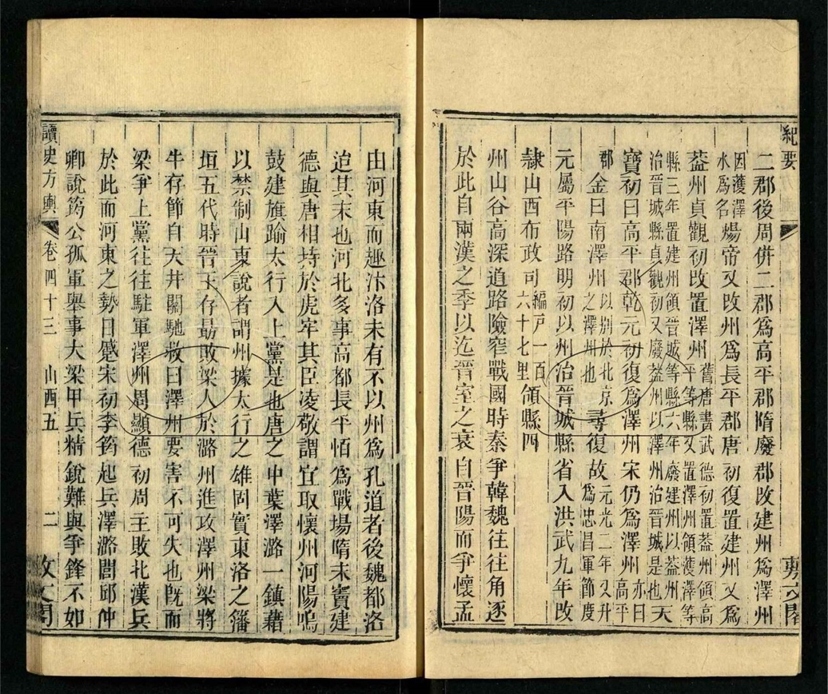 紀要
敷文閣
二郡後周併二郡爲高平郡隋廢郡改建州爲澤州
因濩澤水爲名煬帝又改州爲長平郡唐初復置建州又爲
葢州貞觀初改置澤州舊唐書武德初置葢州領高平等縣又置澤州領濩澤等
縣三年置建州領晉城等縣六年廢建州以葢州治晉城縣貞觀初又廢葢州以澤州治晉城是也天
寶初曰高平郡乾元初復爲澤州宋仍爲澤州亦曰高平
郡金曰南澤州以別於北京之澤州也尋復故元光二年又升爲忠昌軍節度
元屬平陽路明初以州治晉城縣省入洪武九年改
隸山西布政司編戶一百六十七里領縣四
州山谷高深道路險窄戰國時秦爭韓魏往往角逐
於此自兩漢之季以迄晉室之衰自晉陽而爭懷孟
由河東而趣汴洛未有不以州爲孔道者後魏都洛
迨其末也河北多事高都長平恒爲戰場隋末竇建
德與唐相持於虎牢其臣凌敬謂宜取懷州河陽鳴
鼓建旗踰太行入上黨是也唐之中葉澤潞一鎮藉
以禁制山東說者謂州據太行之雄固實東洛之藩
垣五代時晉王存勗敗梁人於潞州進攻澤州梁將
牛存節自天井關馳救曰澤州要害不可失也既而
梁爭上黨往往駐軍澤州周顯德初周主敗北漢兵
於此而河東之勢日蹙宋初李筠起兵澤潞閭邱仲
卿說筠公孤軍舉事大梁甲兵精銳難與爭鋒不如
讀史方輿 卷四十三 山西五 二 敷文閣